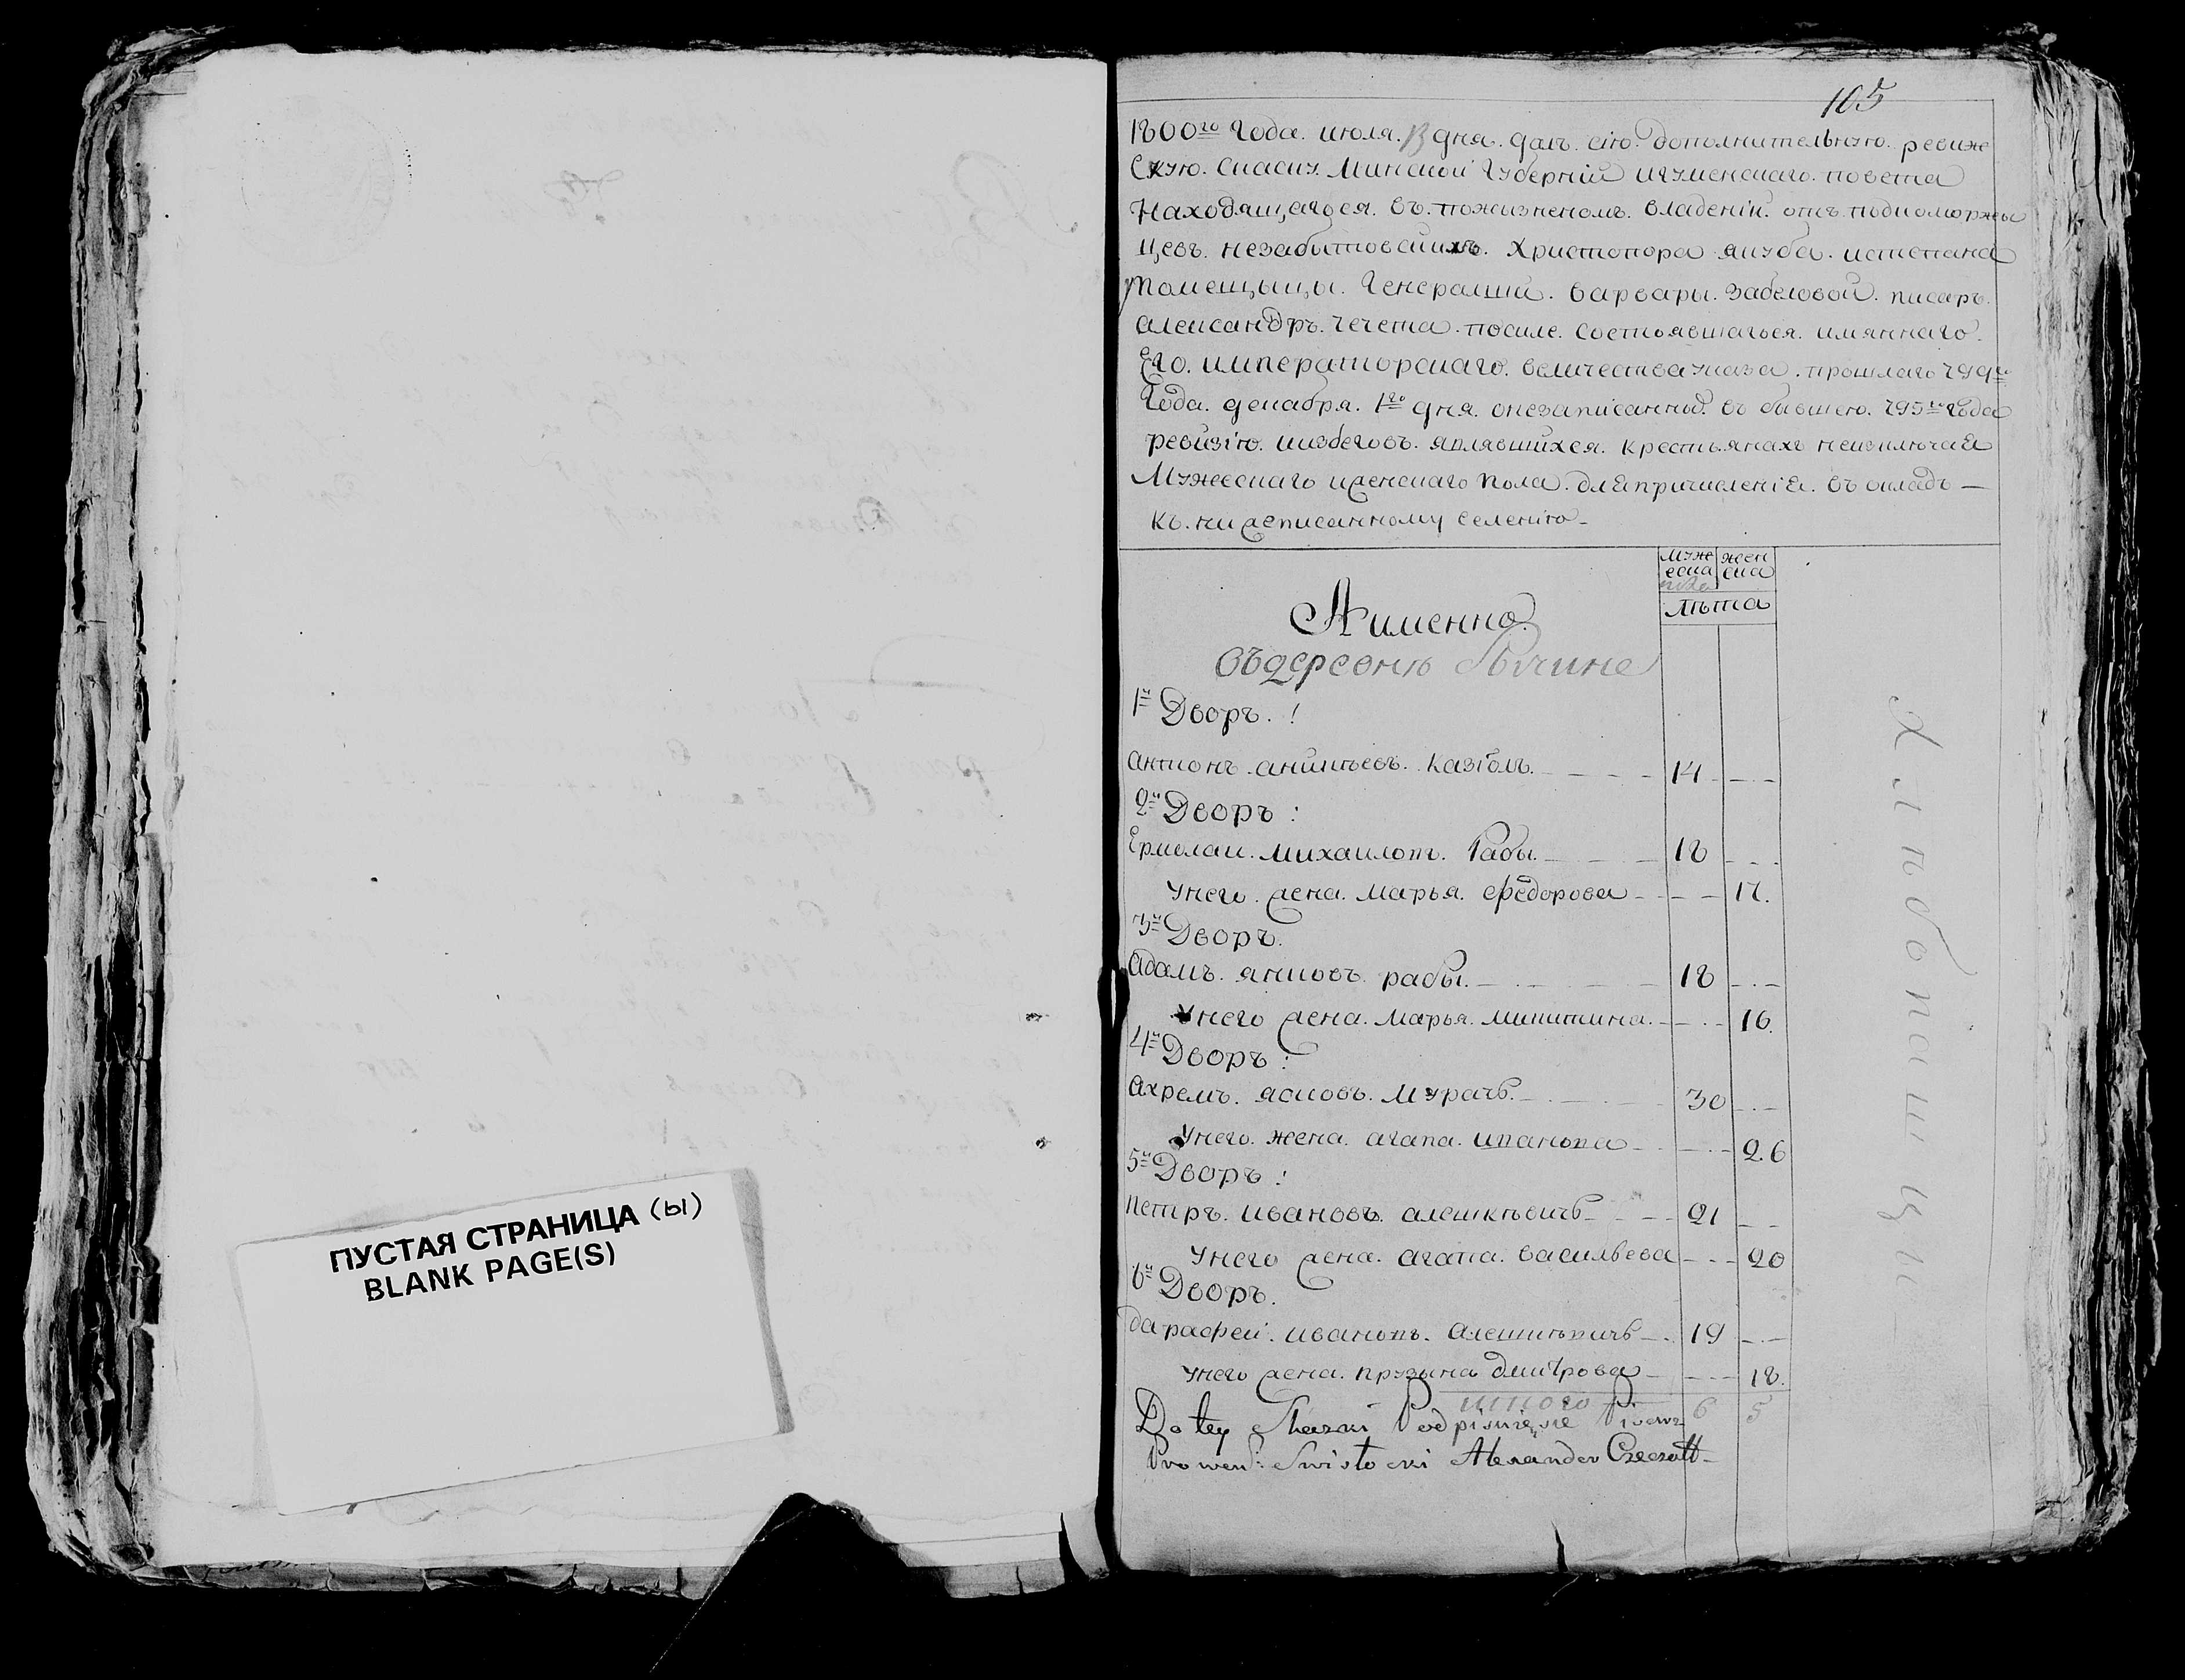 105
1800го Года. июля. 13 дня. далъ. сію. дополнительную. ревиже
Скую. Сказку. Минской Губерній игуменскаго. повета
Находящагося. въ. пожизненомъ. владеніи. отъ. подкоморжы
цевъ. незабитовскихъ. Христопора якуба. истепана
Помещыцы. Генералши. варвары. Забеловой. писаръ.
александръ. чечета. посиле. состоявшагося. имяннаго.
Его. императорскаго. величества указа. прошлаго 799го
Года. декабря. 1го дня. онезаписанных. въ бывшею. 795го года
ревизію. избеговъ. яплявшихся. крестьянахъ неизключая
Мужескаго иженскаго пола. для причисленія. въ окладъ —
къ. нижеписанному селенію —
муже
ска
пола
жен
ска
лѣта
Аименно
въдеревнѣ Ячине
1й Дворъ. !
антионъ. аникѣевъ. казголъ. 14
2й Дворъ :
Ермолаи. михаилопъ. Рабы. 18
Унего. жена. марья. федорова 17.
3й Дворъ.
адамъ. янковъ. рабы. 18
Унего жена. марья. микитина. 16.
4й Дворъ :
ахремъ. ясковъ. мурачъ. 30
Унего. жена. агапа. ипанопа 26
5й Дворъ !
петръ. ивановъ. алешкѣвичъ 21
Унего жена. агапа. васильева 20
6й Дворъ.
дарафеи. иванопъ. алешкѣпичъ 19
унего жена. прузына дмитрова 18.
итого 6 5
Do tey Skazki Podpisuię się Pisarz
Prowen: Swistocki Alexander Czeczott
ПУСТАЯ СТРАНИЦА (Ы)
BLANK PAGE(S)